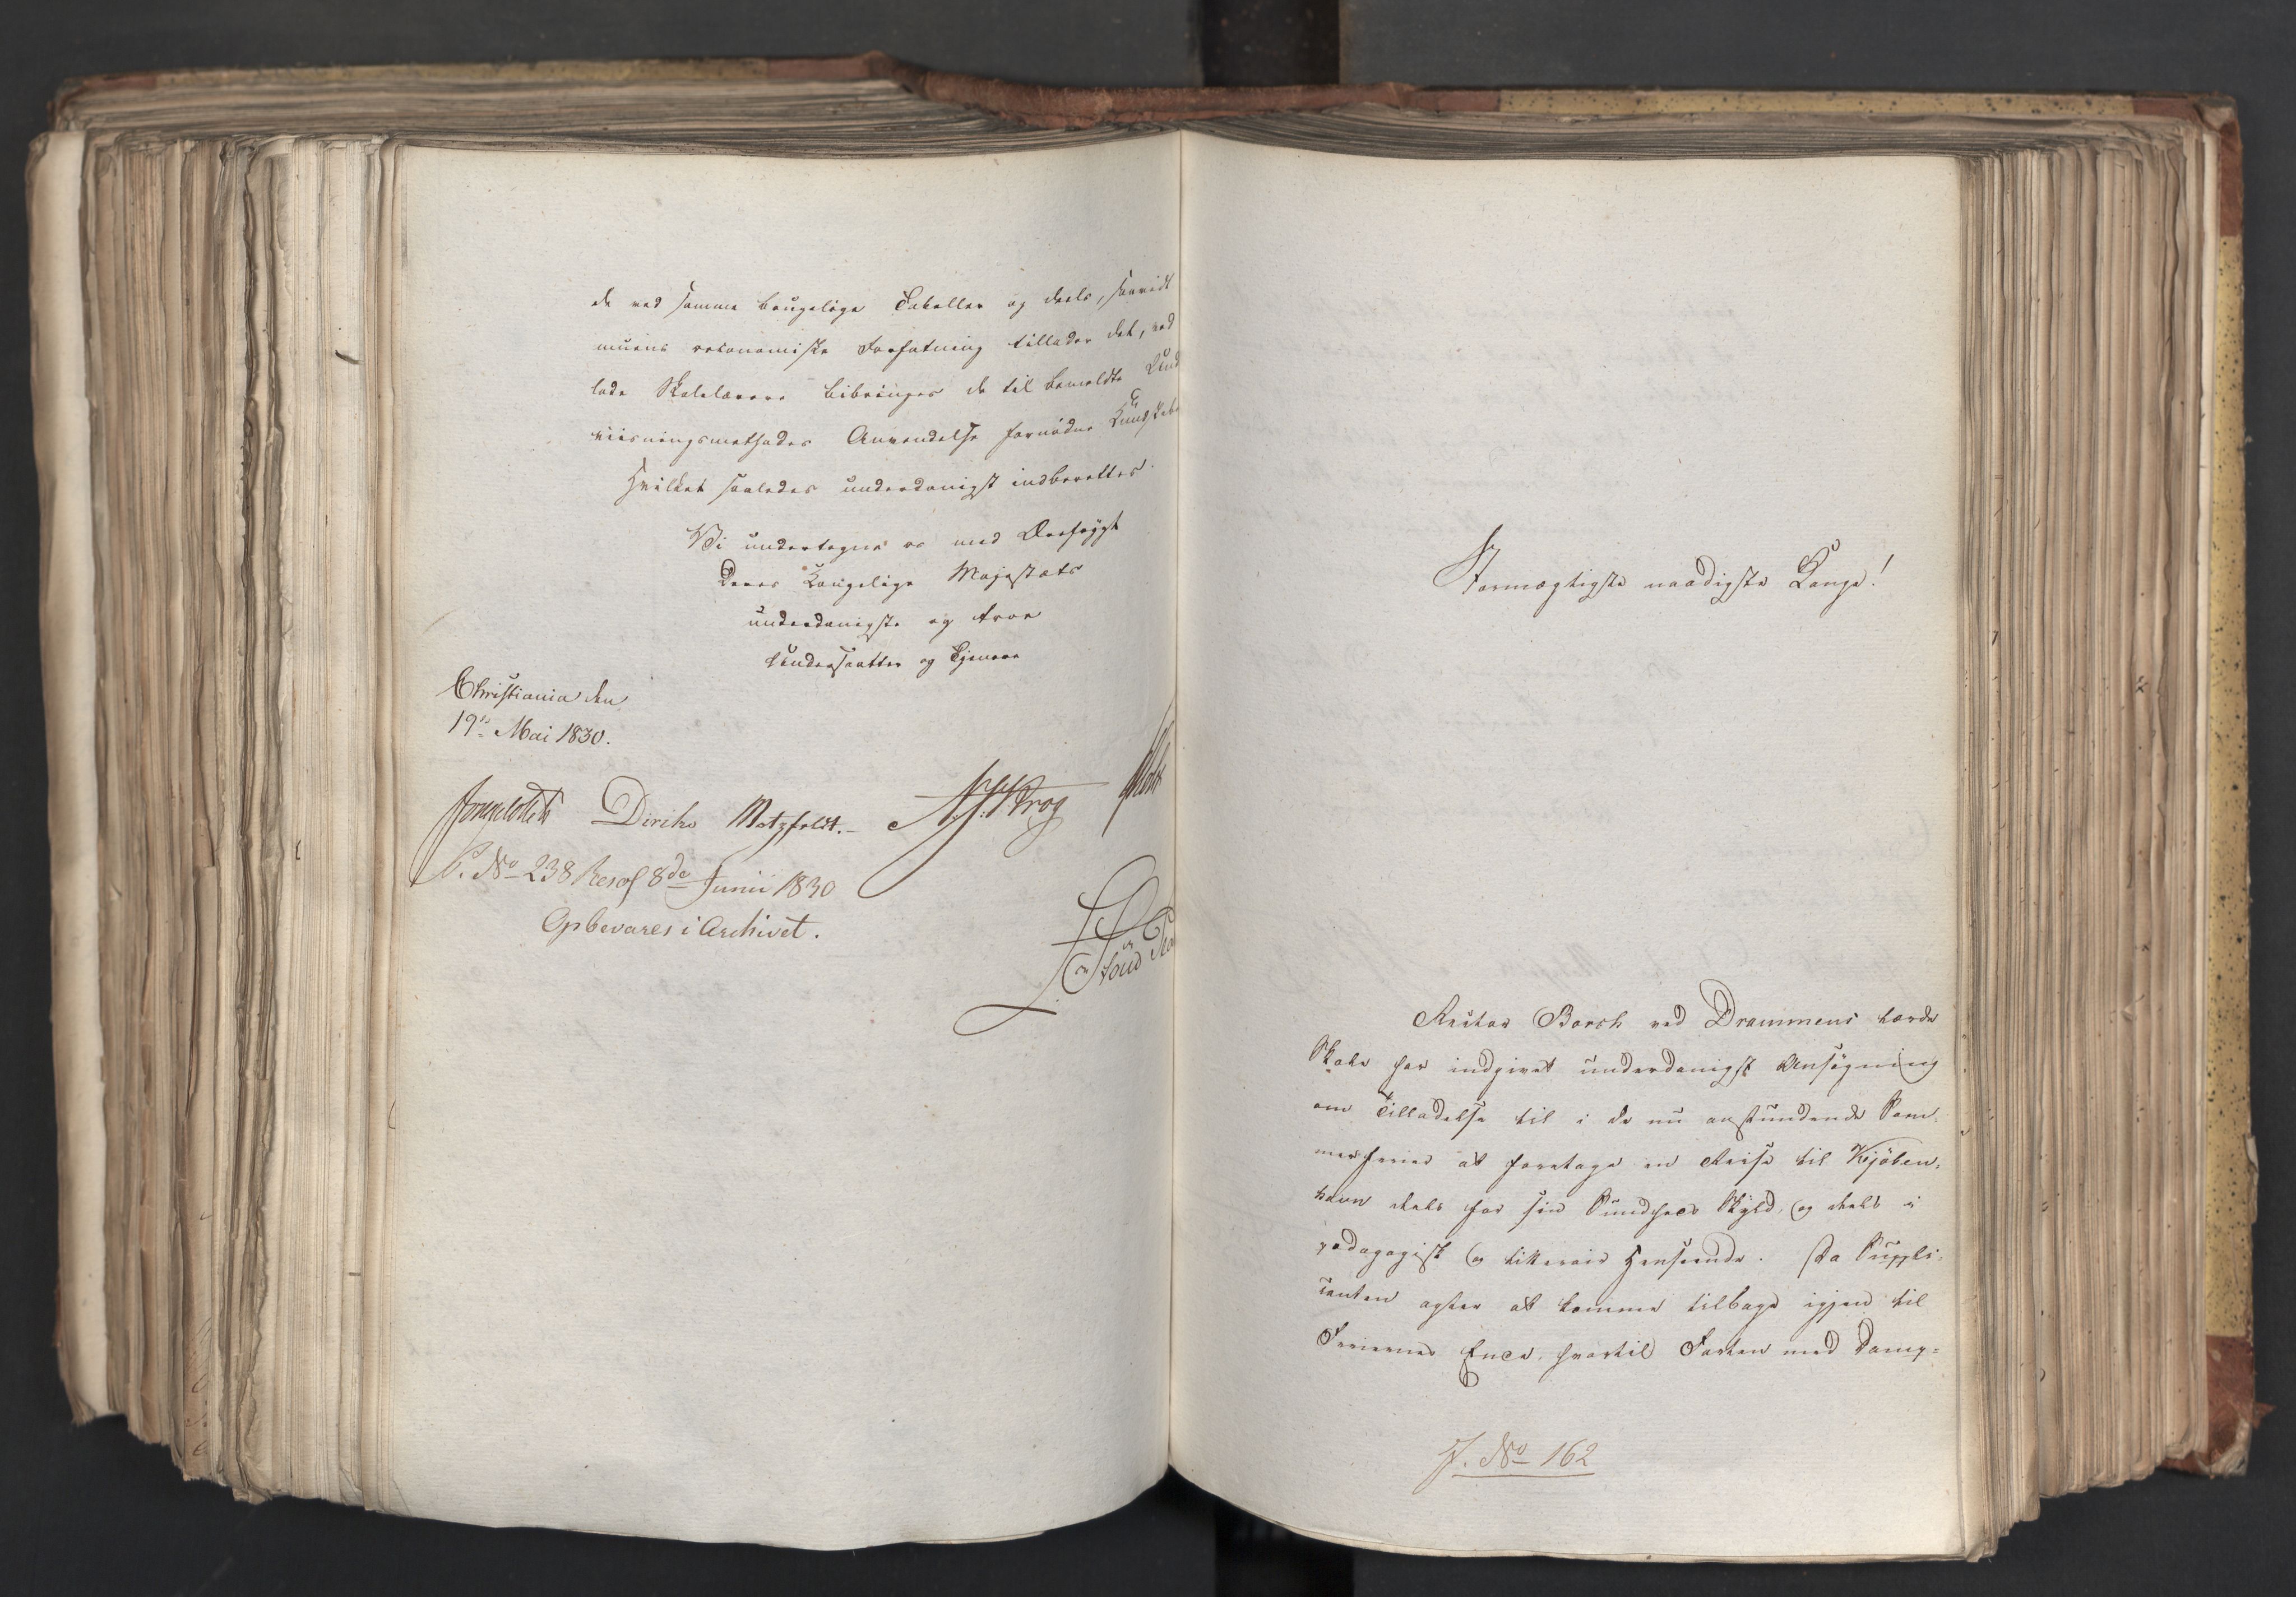 de ved samme brugelige Tabeller og deels, saavidt
muens oeconomiske Forfatning tillader det, ved
lade Skolelærere bibringes de til bemeldte Und
viisningsmethodes Anvendelse fornødne Kundskaber
Hvilket saaledes underdanigst indberettes.
Vi undertegne os med Ærefrygt
Deres Kongelige Majestæts
underdanigste og troe
Undersaatter og Tjenere
Christiania den
19de Mai 1830.
Diriks Motzfeldt. Krog
S. No 238 Resol 8de Junii 1830
Opbevares i Archivet.
Stormægtigste naadigste Konge!
Rector Borch ved Drammens lærde
Skole har indgivet underdanigst Ansøgning
om Tilladelse til i de nu anstundende Som-
merferier at foretage en Reise til Kjøben-
havn deels for sin Sundheds Skyld, og deels i
pædagogisk og litterair Henseende. Da Suppli-
canten agter at komme tilbage igjen til
Feriernes Ende, hvortil Farten med Damp-
J. No 162